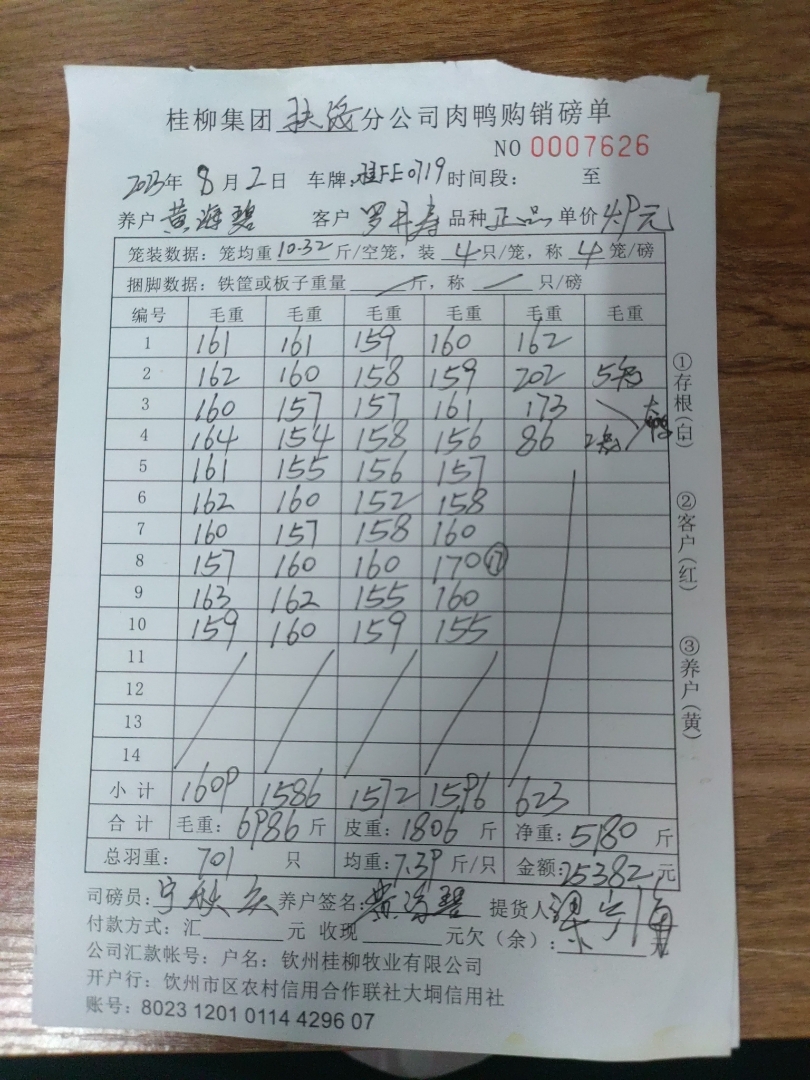 桂柳集团扶海分公司肉鸭购销磅单
NO 0007626
2023年 8月2日 车牌:桂FE0719 时间段: 至
养户 黄海碧 客户 罗寿 品种 正品 单价 4.9元
笼装数据: 笼均重 10.32 斤/空笼, 装 4 只/笼, 称 4 笼/磅
捆脚数据: 铁筐或板子重量 / 斤, 称 / 只/磅
编号 毛重 毛重 毛重 毛重 毛重 毛重
1 161 161 159 160 162
2 162 160 158 159 202 5笼
3 160 157 157 161 173
4 164 154 158 156 86 2笼
5 161 155 156 157
6 162 160 152 158
7 160 157 158 160
8 157 160 160 170 ⑰
9 163 162 155 160
10 159 160 159 155
11
12
13
14
小计 1609 1586 1572 1596 623
合计 毛重: 6986 斤 皮重: 1806 斤 净重: 5180 斤
总羽重: 701 只 均重: 7.39 斤/只 金额: 25382 元
司磅员: 宁秋 养户签名: 黄海碧 提货人
付款方式: 汇 元 收现 元欠(余): 元
公司汇款帐号: 户名: 钦州桂柳牧业有限公司
开户行: 钦州市区农村信用合作联社大垌信用社
账号: 8023 1201 0114 4296 07
①存根(白)
②客户(红)
③养户(黄)